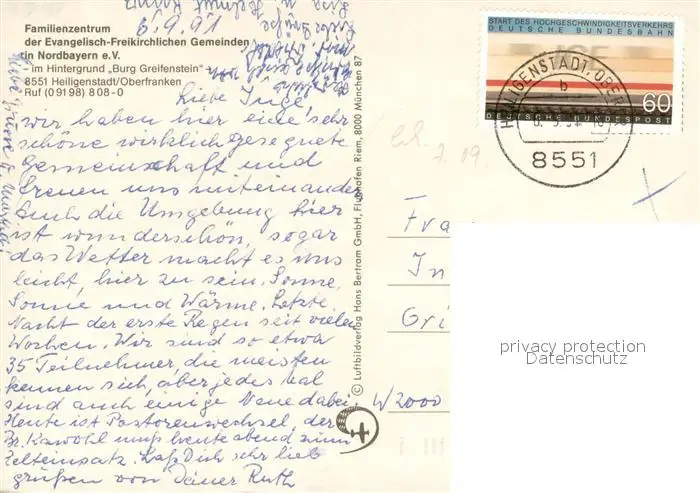 Familienzentrum
der Evangelisch-Freikirchlichen Gemeinden
in Nordbayern e.V.
- im Hintergrund „Burg Greifenstein" -
8551 Heiligenstadt/Oberfranken
Ruf (09198) 808-0
6.9.91
Liebe Inge,
wir haben hier eine sehr
schöne wirklich gesegnete
Gemeinschaft und
freuen uns miteinander
Auch die Umgebung hier
ist wunderschön, sogar
das Wetter macht es uns
leicht, hier zu sein. Sonne,
Sonne und Wärme. Letzte
Nacht der erste Regen seit vielen
Wochen. Wir sind so etwa
35 Teilnehmer, die meisten
kennen sich, aber jedes Mal
sind auch einige Neue dabei.
Heute ist Pastorenwechsel, der
Br. Kawohl muß heute abend zum
Zelteinsatz. Laß Dich sehr lieb
grüßen von Deiner Ruth
© Luftbildverlag Hans Bertram GmbH, Flughafen Riem, 8000 München 87
START DES HOCHGESCHWINDIGKEITSVERKEHRS
DEUTSCHE BUNDESBAHN
ICE
60
DEUTSCHE BUNDESPOST
HEILIGENSTADT, OBERFR
b
8551
Fra
In
Gri
W 2000
privacy protection
Datenschutz